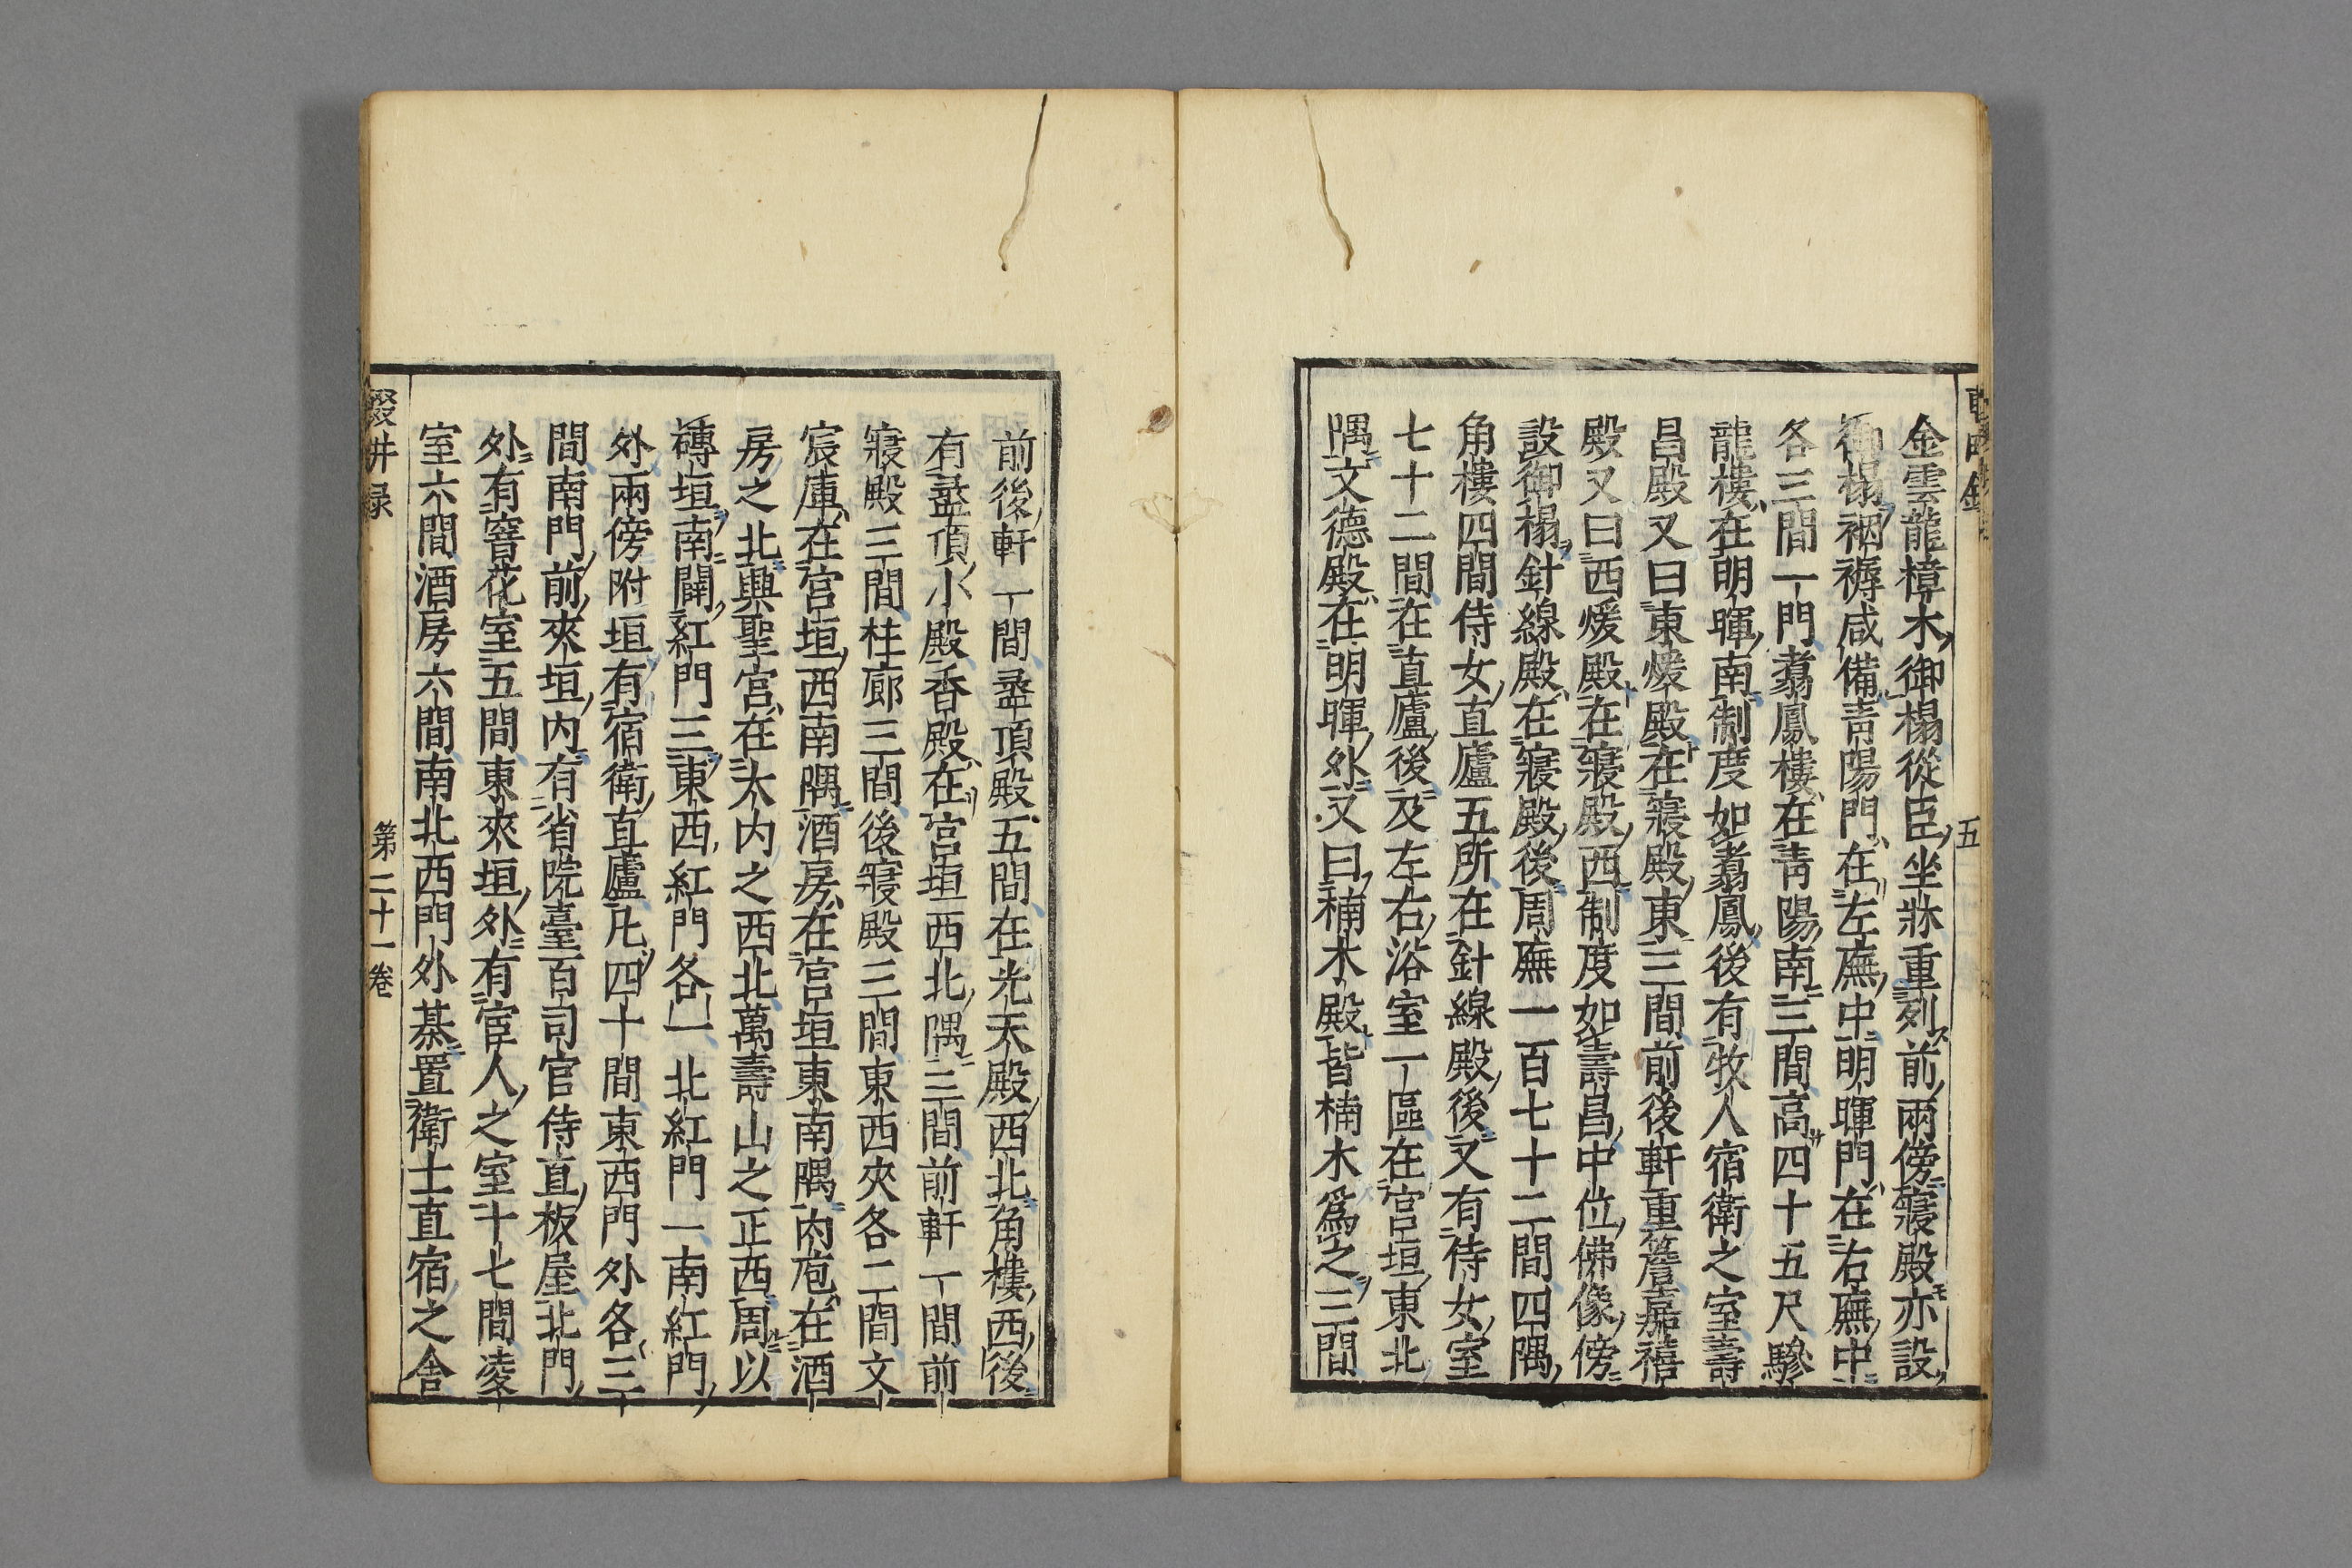 五
金雲龍樟木御榻從臣坐牀重列前兩傍寢殿亦設
御榻裀褥咸備青陽門在左廡中明暉門在右廡中
各三間一門翥鳳樓在青陽南三間高四十五尺驂
龍樓在明暉南制度如翥鳳後有牧人宿衛之室壽
昌殿又曰東煖殿在寢殿東三間前後軒重簷嘉禧
殿又曰西煖殿在寢殿西制度如壽昌中位佛像傍
設御榻針線殿在寢殿後周廡一百七十二間四隅
角樓四間侍女直廬五所在針線殿後又有侍女室
七十二間在直廬後及左右浴室一區在宮垣東北
隅文德殿在明暉外又曰楠木殿皆楠木爲之三間
前後軒一間盝頂殿五間在光天殿西北角樓西後
有盝頂小殿香殿在宮垣西北隅三間前軒一間前
寢殿三間柱廊三間後寢殿三間東西夾各二間文
宸庫在宮垣西南隅酒房在宮垣東南隅內庖在酒
房之北興聖宮在大内之西北萬壽山之正西周以
磚垣南闢紅門三東西紅門各一北紅門一南紅門
外兩傍附垣有宿衛直廬凡四十間東西門外各三
間南門前夾垣内有省院臺百司官侍直板屋北門
外有窨花室五間東夾垣外有宦人之室十七間凌
室六間酒房六間南北西門外棊置衛士直宿之舍
輟耕录
第二十一卷